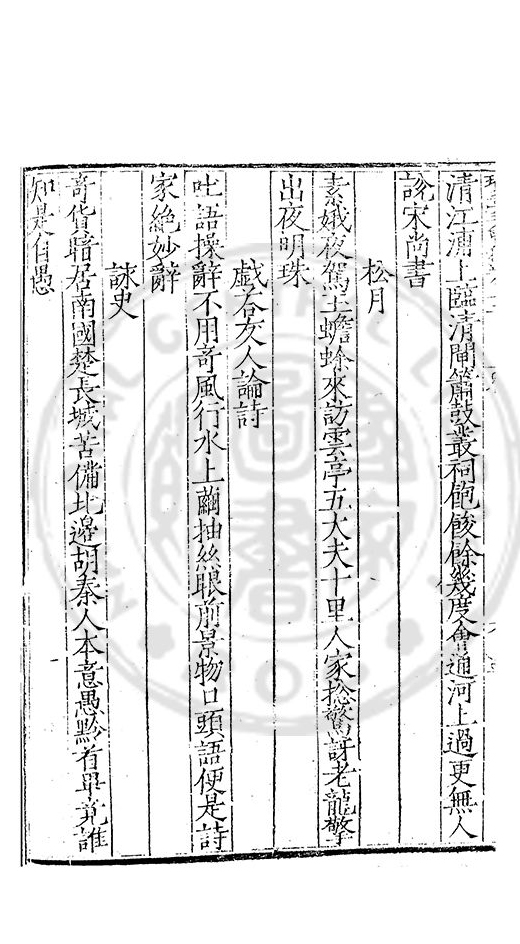 清江浦上臨清閘簫鼓叢祠飽餕餘幾度會通河上過更無人
說宋尚書
松月
素娥夜駕玉蟾蜍來訪雲亭五大夫十里人家捴驚訝老龍擎
出夜明珠
戱荅友人論詩
吐語操辭不用竒風行水上繭抽絲眼前景物口頭語便是詩
家絶妙辭
詠史
竒貨暗居南國楚長城苦備北邊胡秦人本意愚黔首畢竟誰
知是自愚